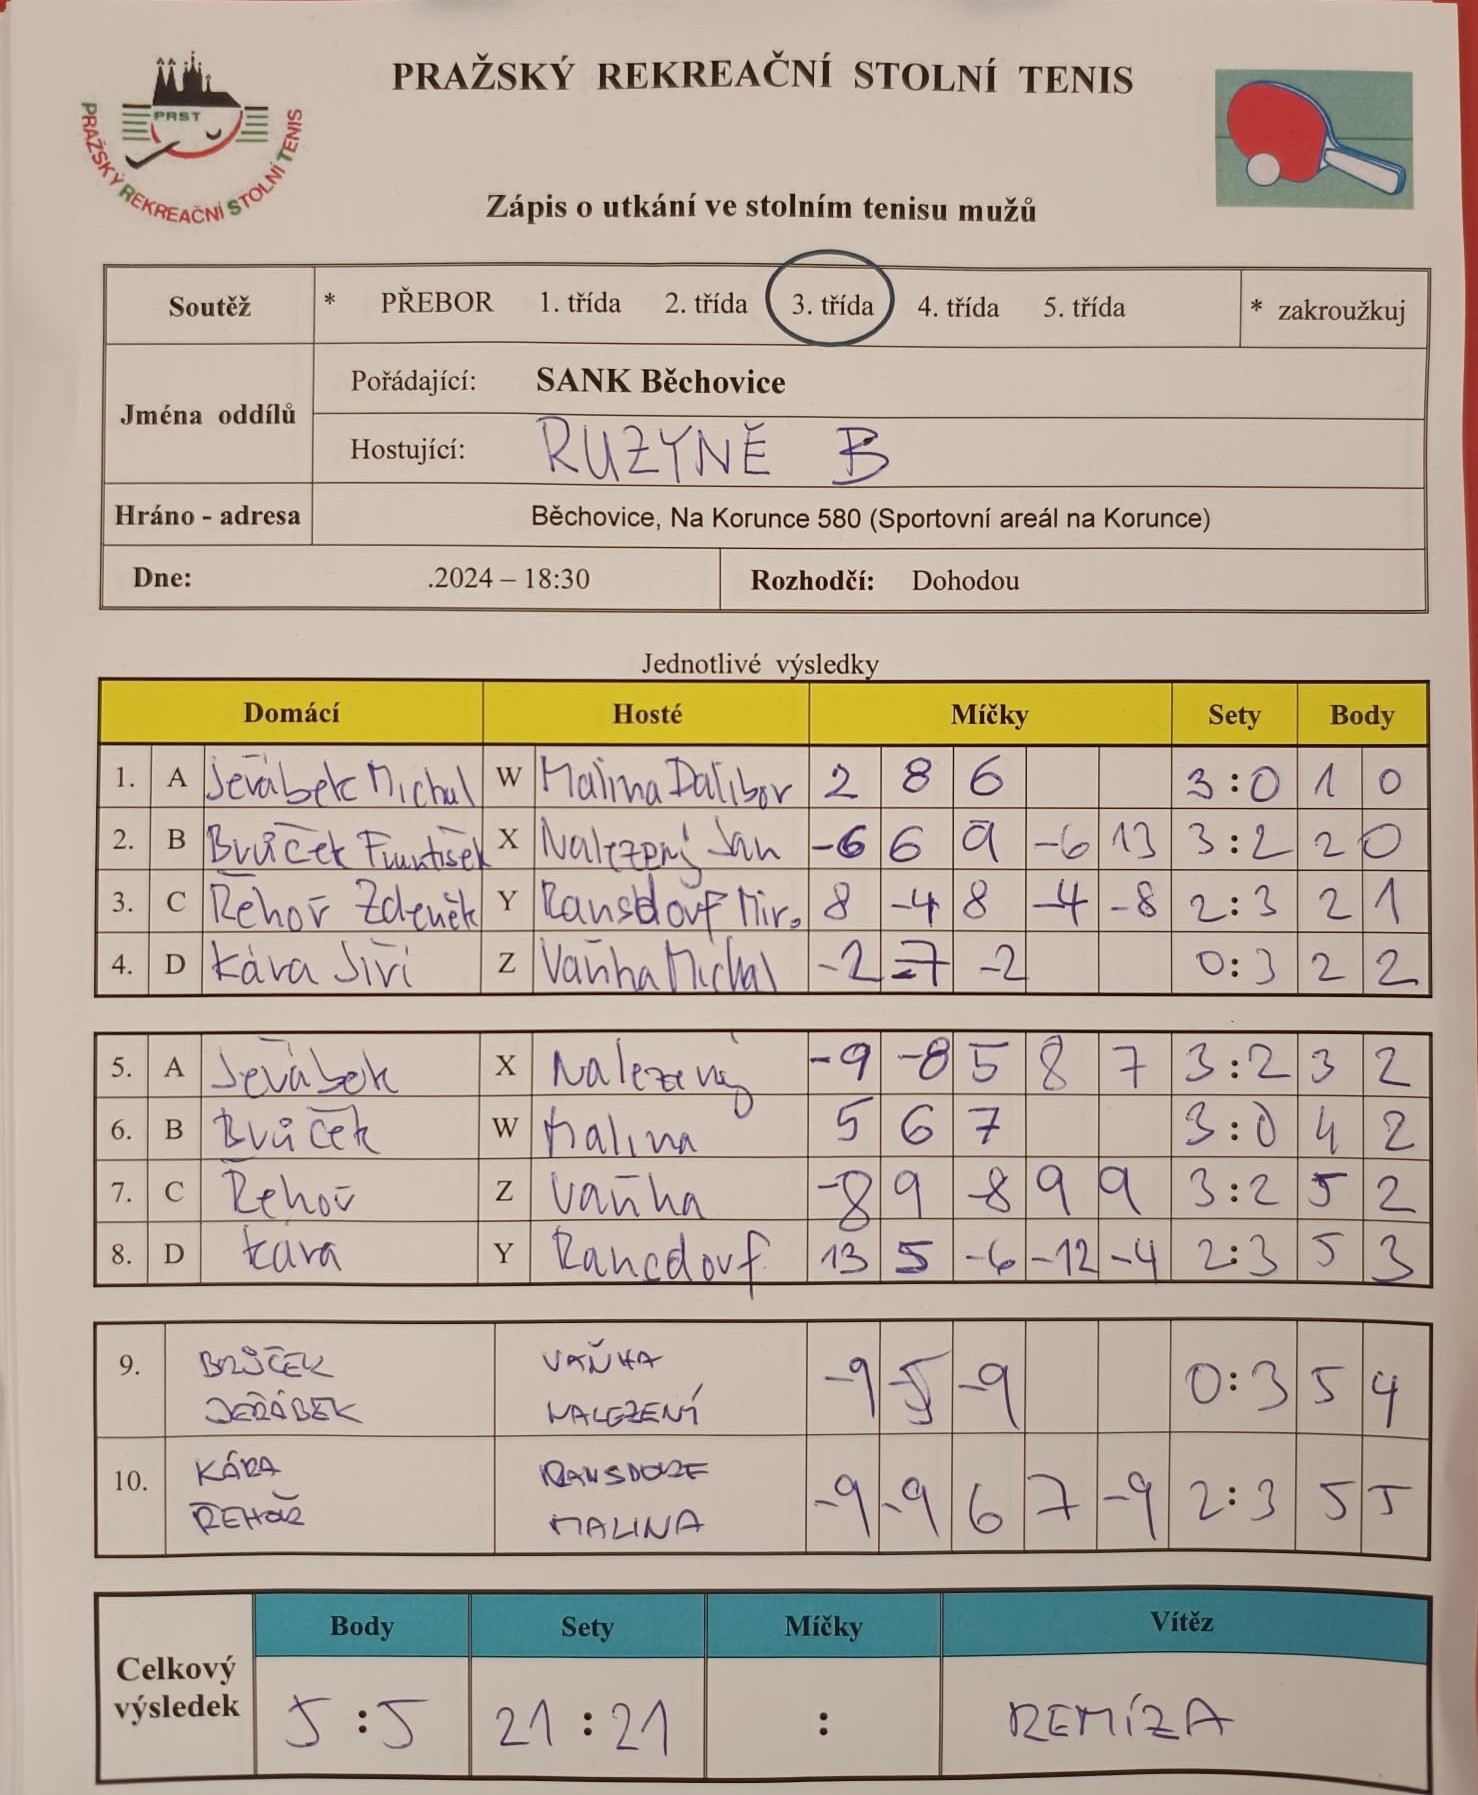 PRAŽSKÝ REKREAČNÍ STOLNÍ TENIS
PRST
PRAŽSKÝ REKREAČNÍ STOLNÍ TENIS
Zápis o utkání ve stolním tenisu mužů
Soutěž * PŘEBOR 1. třída 2. třída 3. třída 4. třída 5. třída * zakroužkuj
Jména oddílů
Pořádající: SANK Běchovice
Hostující: RUZYNĚ B
Hráno - adresa Běchovice, Na Korunce 580 (Sportovní areál na Korunce)
Dne: .2024 – 18:30 Rozhodčí: Dohodou
Jednotlivé výsledky
Domácí Hosté Míčky Sety Body
1. A Jeřábek Michal W Malina Dalibor 2 8 6 3:0 1 0
2. B Brůček František X Nalezený Jan -6 6 9 -6 13 3:2 2 0
3. C Řehoř Zdeněk Y Ransdorf Mir. 8 -4 8 -4 -8 2:3 2 1
4. D Kára Jiří Z Vaňha Michal -2 -7 -2 0:3 2 2
5. A Jeřábek X Nalezený -9 -8 5 8 7 3:2 3 2
6. B Brůček W Malina 5 6 7 3:0 4 2
7. C Řehoř Z Vaňha -8 9 -8 9 9 3:2 5 2
8. D Kára Y Ransdorf 13 5 -6 -12 -4 2:3 5 3
9. BRŮČEK VAŇHA -9 -5 -9 0:3 5 4
JEŘÁBEK NALEZENÝ
10. KÁRA RANSDORF -9 -9 6 7 -9 2:3 5 5
ŘEHOŘ MALINA
Body Sety Míčky Vítěz
Celkový výsledek 5:5 21:21 : REMÍZA